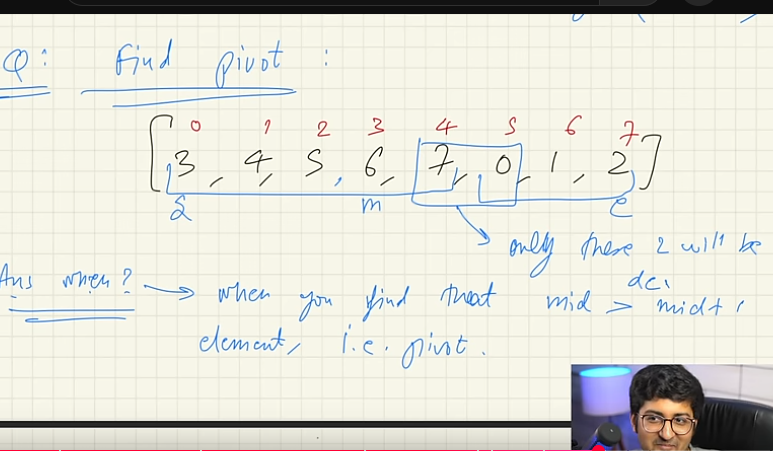 Q: Find pivot :
0 1 2 3 4 5 6 7
[3, 4, 5, 6, 7, 0, 1, 2]
S m e
only these 2 will be
dc.
Ans when? → when you find that mid > mid+1
element, i.e. pivot.